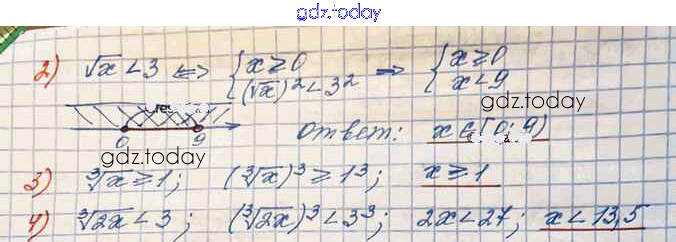 gdz.today
2) √x < 3 <=> { x ≥ 0 (√x)² < 3² => { x ≥ 0 x < 9
gdz.today
0 9 Ответ: x ∈ [0; 9)
gdz.today
3) ∛x ≥ 1; (∛x)³ ≥ 1³; x ≥ 1
4) ∛2x < 3; (∛2x)³ < 3³; 2x < 27; x < 13,5